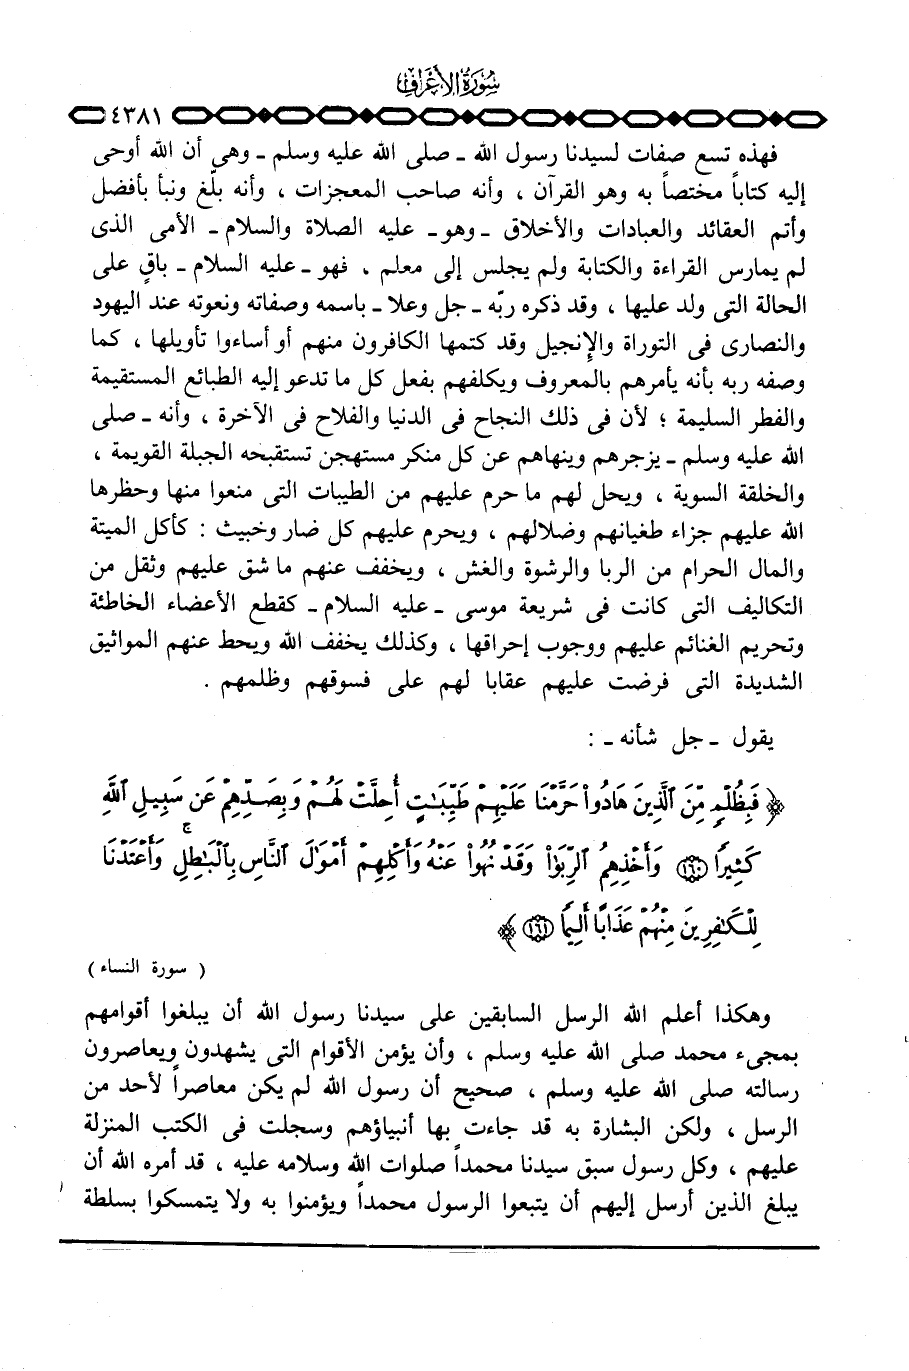 سورة الأعراف
٤٣٨١
فهذه تسع صفات لسيدنا رسول الله ـ صلى الله عليه وسلم ـ وهى أن الله أوحى
إليه كتاباً مختصاً به وهو القرآن ، وأنه صاحب المعجزات ، وأنه بلّغ ونبأ بأفضل
وأتم العقائد والعبادات والأخلاق ـ وهو ـ عليه الصلاة والسلام ـ الأمى الذى
لم يمارس القراءة والكتابة ولم يجلس إلى معلم ، فهو ـ عليه السلام ـ باقٍ على
الحالة التى ولد عليها ، وقد ذكره ربّه ـ جل وعلا ـ باسمه وصفاته ونعوته عند اليهود
والنصارى فى التوراة والإنجيل وقد كتمها الكافرون منهم أو أساءوا تأويلها ، كما
وصفه ربه بأنه يأمرهم بالمعروف ويكلفهم بفعل كل ما تدعو إليه الطبائع المستقيمة
والفطر السليمة ؛ لأن فى ذلك النجاح فى الدنيا والفلاح فى الآخرة ، وأنه ـ صلى
الله عليه وسلم ـ يزجرهم وينهاهم عن كل منكر مستهجن تستقبحه الجبلة القويمة ،
والخلقة السوية ، ويحل لهم ما حرم عليهم من الطيبات التى منعوا منها وحظرها
الله عليهم جزاء طغيانهم وضلالهم ، ويحرم عليهم كل ضار وخبيث : كأكل الميتة
والمال الحرام من الربا والرشوة والغش ، ويخفف عنهم ما شق عليهم وثقل من
التكاليف التى كانت فى شريعة موسى ـ عليه السلام ـ كقطع الأعضاء الخاطئة
وتحريم الغنائم عليهم ووجوب إحراقها ، وكذلك يخفف الله ويحط عنهم المواثيق
الشديدة التى فرضت عليهم عقابا لهم على فسوقهم وظلمهم .
يقول ـ جل شأنه ـ :
﴿ فَبِظُلْمٍ مِّنَ ٱلَّذِينَ هَادُوا۟ حَرَّمْنَا عَلَيْهِمْ طَيِّبَـٰتٍ أُحِلَّتْ لَهُمْ وَبِصَدِّهِمْ عَن سَبِيلِ ٱللَّهِ
كَثِيرًا ١٦٠ وَأَخْذِهِمُ ٱلرِّبَوٰا۟ وَقَدْ نُهُوا۟ عَنْهُ وَأَكْلِهِمْ أَمْوَٰلَ ٱلنَّاسِ بِٱلْبَـٰطِلِ ۚ وَأَعْتَدْنَا
لِلْكَـٰفِرِينَ مِنْهُمْ عَذَابًا أَلِيمًا ١٦١ ﴾
( سورة النساء )
وهكذا أعلم الله الرسل السابقين على سيدنا رسول الله أن يبلغوا أقوامهم
بمجىء محمد صلى الله عليه وسلم ، وأن يؤمن الأقوام التى يشهدون ويعاصرون
رسالته صلى الله عليه وسلم ، صحيح أن رسول الله لم يكن معاصراً لأحد من
الرسل ، ولكن البشارة به قد جاءت بها أنبياؤهم وسجلت فى الكتب المنزلة
عليهم ، وكل رسول سبق سيدنا محمداً صلوات الله وسلامه عليه ، قد أمره الله أن
يبلغ الذين أرسل إليهم أن يتبعوا الرسول محمداً ويؤمنوا به ولا يتمسكوا بسلطة